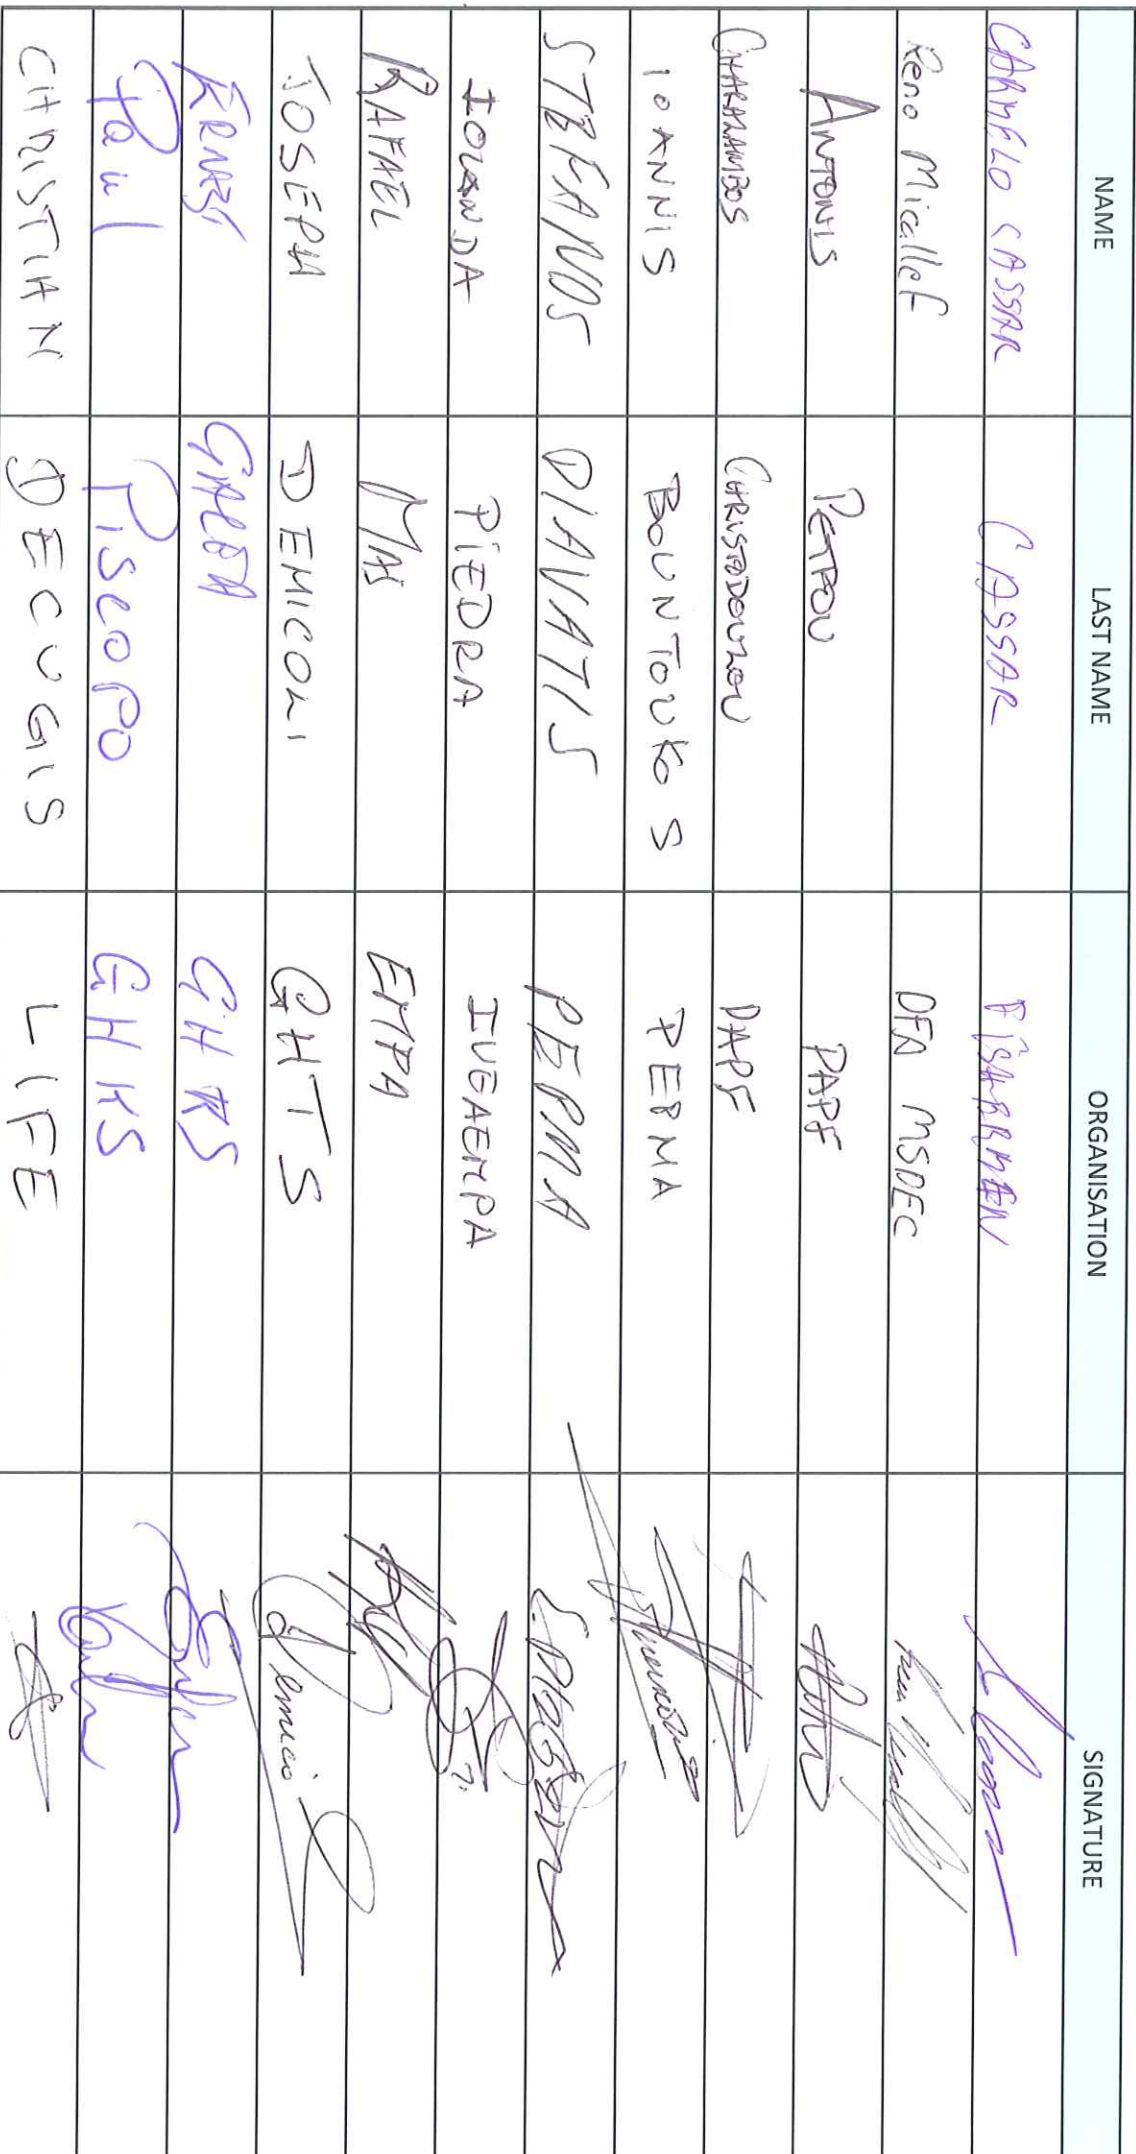 NAME LAST NAME ORGANISATION SIGNATURE
CARMELO CASSAR CASSAR FISHERMEN
Reno Micallef DFA MSDEC
ANTONIS PETROU PAPF
CHARALAMBOS CHRISTODOULOU PAPF
IOANNIS BOUNTOUKOS PEPMA
STEFANOS DIAVATIS PEPMA
IOLANDA PIEDRA IUGAEMPA
RAFAEL MAS EMPA
JOSEPH DEMICOLI GHTS
ERNEST GALEA GHKS
Paul PISCOPO GHKS
CHRISTIAN DECUGIS LIFE